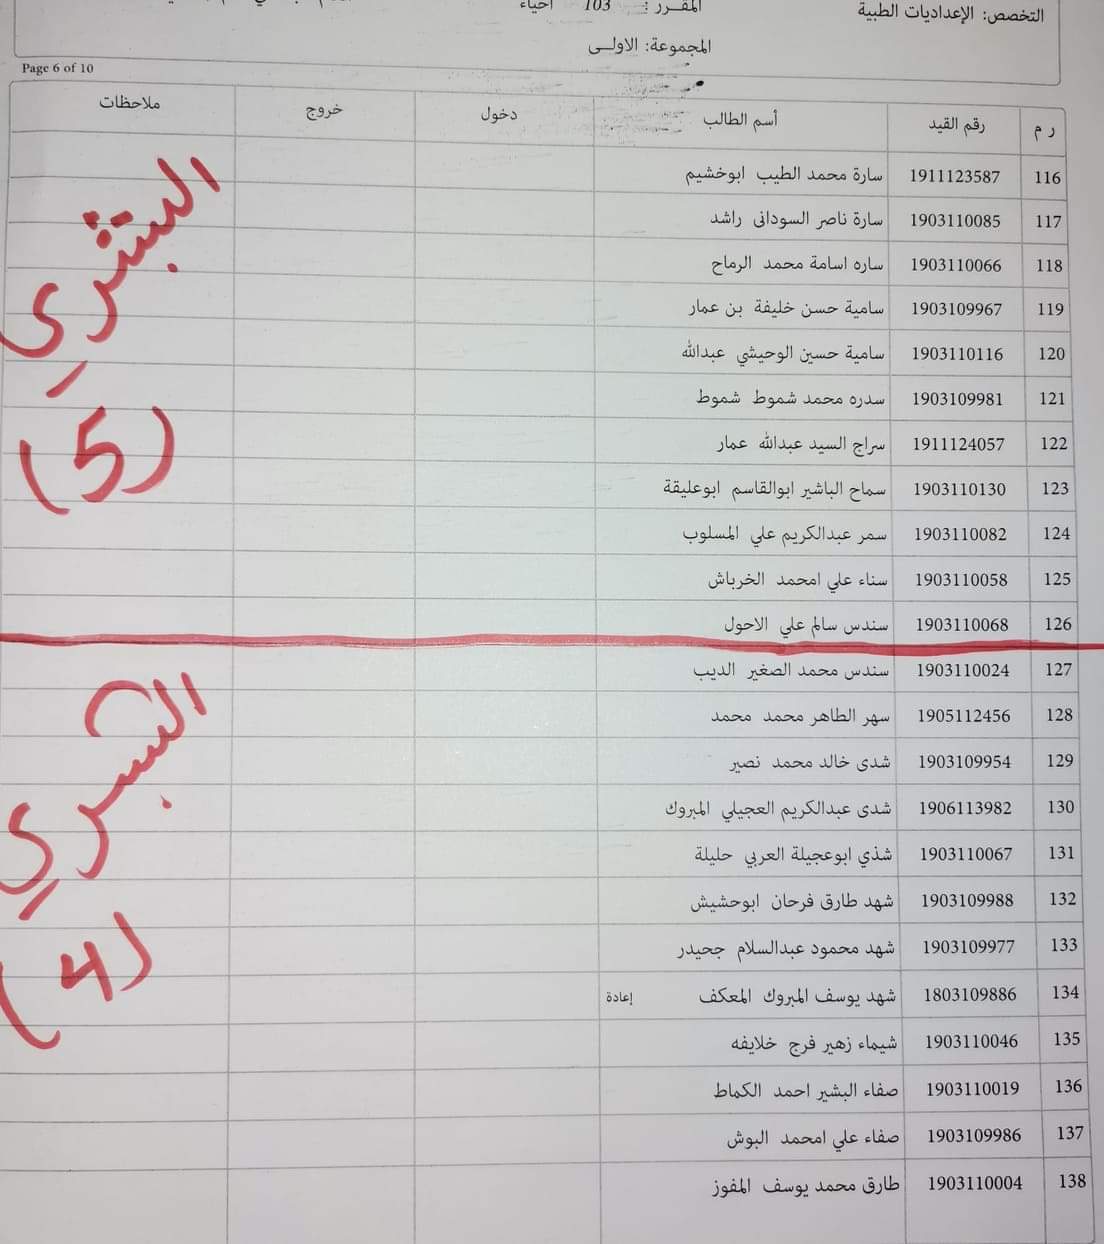 التخصص: الإعداديات الطبية
المقرر : 103 أحياء
المجموعة: الاولى
Page 6 of 10
ر م رقم القيد أسم الطالب دخول خروج ملاحظات
116 1911123587 سارة محمد الطيب ابوخشيم
117 1903110085 سارة ناصر السودانى راشد
118 1903110066 ساره اسامة محمد الرماح
119 1903109967 سامية حسن خليفة بن عمار
120 1903110116 سامية حسين الوحيشي عبدالله
121 1903109981 سدره محمد شموط شموط
122 1911124057 سراج السيد عبدالله عمار
123 1903110130 سماح الباشير ابوالقاسم ابوعليقة
124 1903110082 سمر عبدالكريم علي المسلوب
125 1903110058 سناء علي امحمد الخرباش
126 1903110068 سندس سالم علي الاحول
127 1903110024 سندس محمد الصغير الديب
128 1905112456 سهر الطاهر محمد محمد
129 1903109954 شدى خالد محمد نصير
130 1906113982 شدى عبدالكريم العجيلي المبروك
131 1903110067 شذي ابوعجيلة العربي حليلة
132 1903109988 شهد طارق فرحان ابوحشيش
133 1903109977 شهد محمود عبدالسلام جحيدر
134 1803109886 شهد يوسف المبروك المعكف إعادة
135 1903110046 شيماء زهير فرج خلايفه
136 1903110019 صفاء البشير احمد الكماط
137 1903109986 صفاء علي امحمد البوش
138 1903110004 طارق محمد يوسف المفوز
(5)
(4)